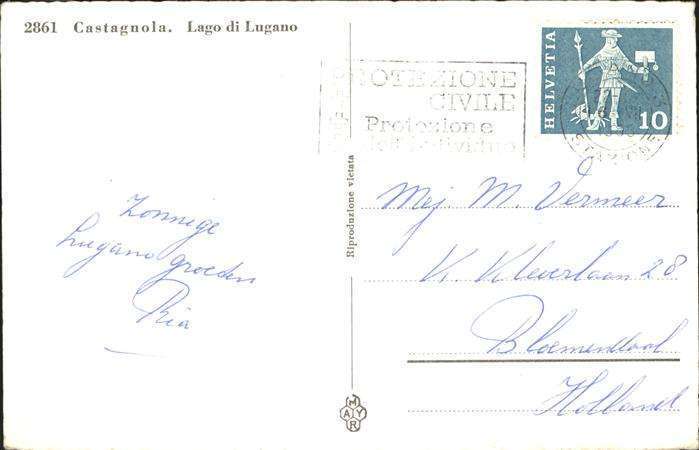 2861 Castagnola. Lago di Lugano
HELVETIA
10
PROTEZIONE
CIVILE
Protezione
dell'individuo
STAZIONE
Riproduzione vietata
Zonnige
Lugano groeten
Ria
Mej M. Vermeer
K. Kleverlaan 28
Bloemendaal
Holland
MAYR